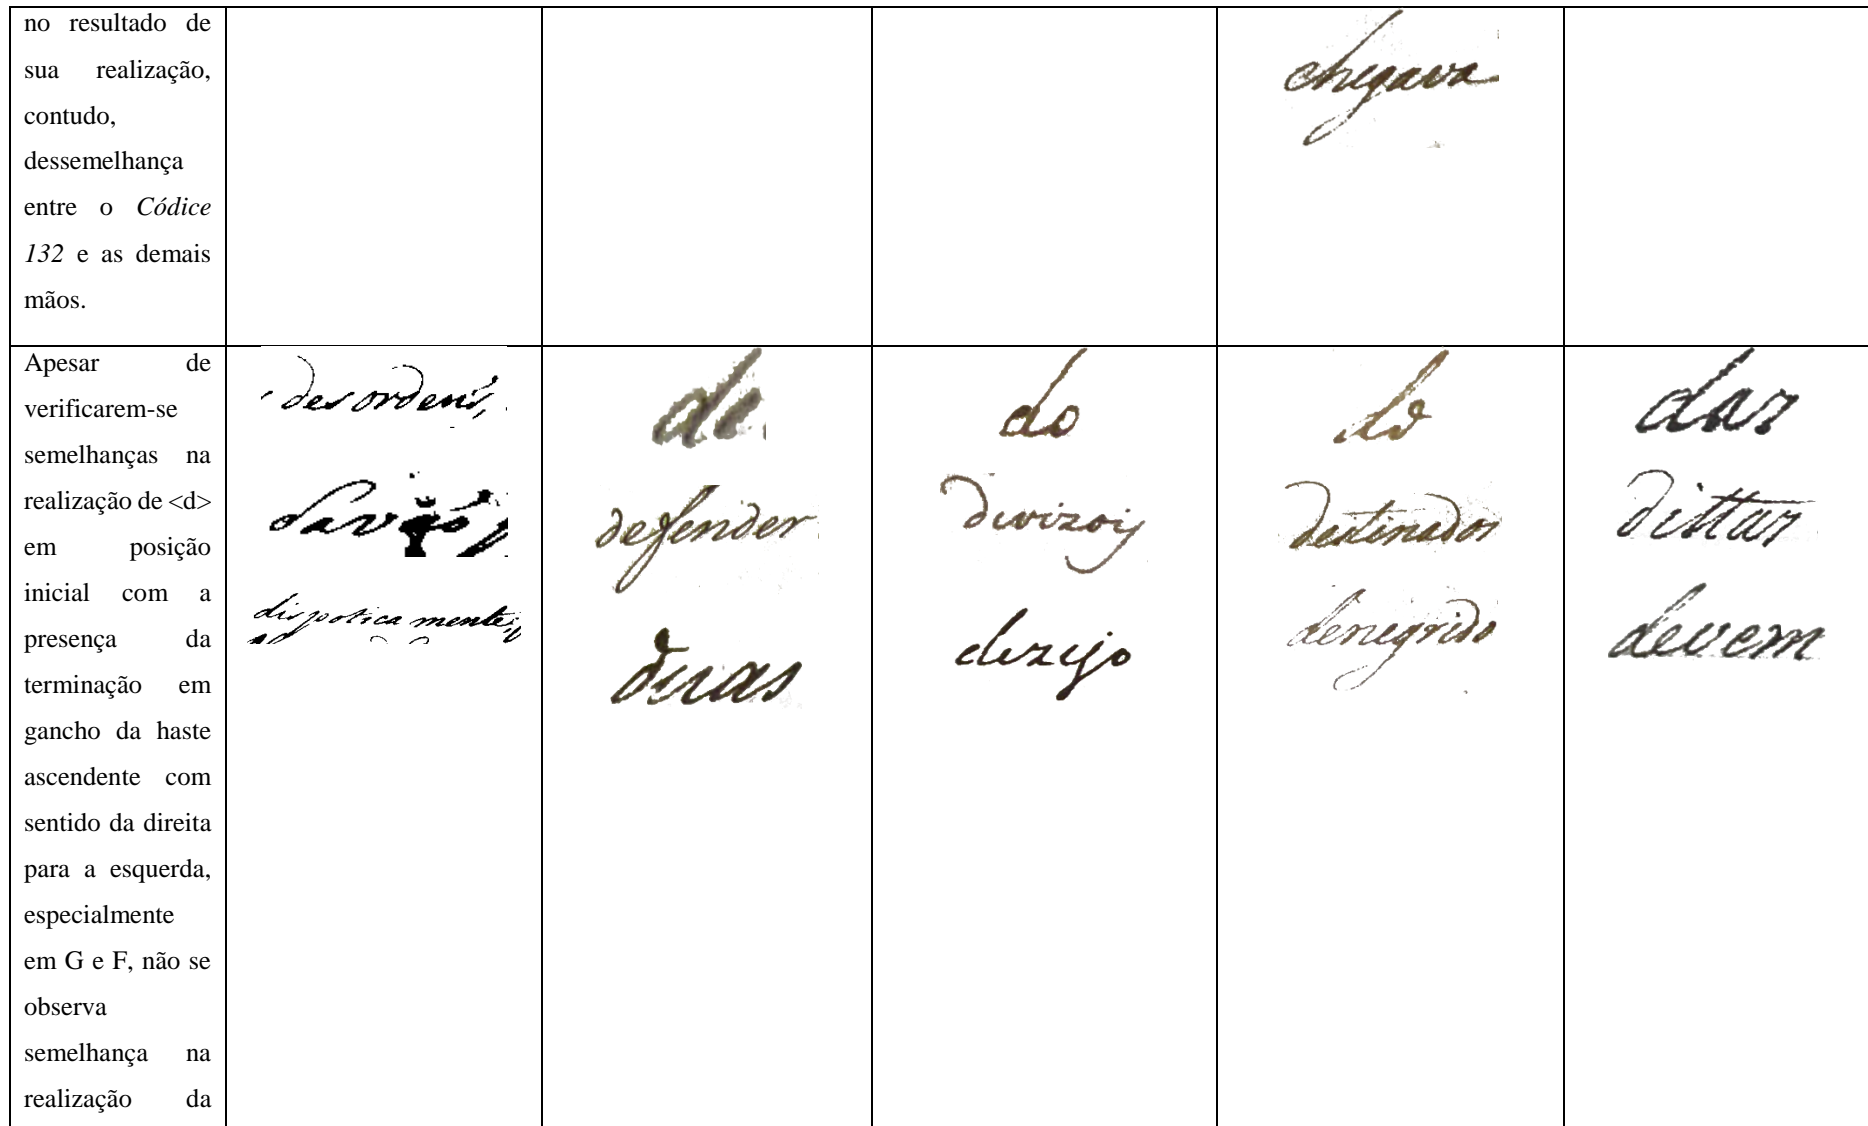 no resultado de
sua realização,
contudo,
dessemelhança
entre o Códice
132 e as demais
mãos.
chegava
Apesar de
verificarem-se
semelhanças na
realização de <d>
em posição
inicial com a
presença da
terminação em
gancho da haste
ascendente com
sentido da direita
para a esquerda,
especialmente
em G e F, não se
observa
semelhança na
realização da
desordens,
dispotica mente,
de
defender
duas
do
divizois
dezejo
do
destinados
denegrido
dar
dittar
devem